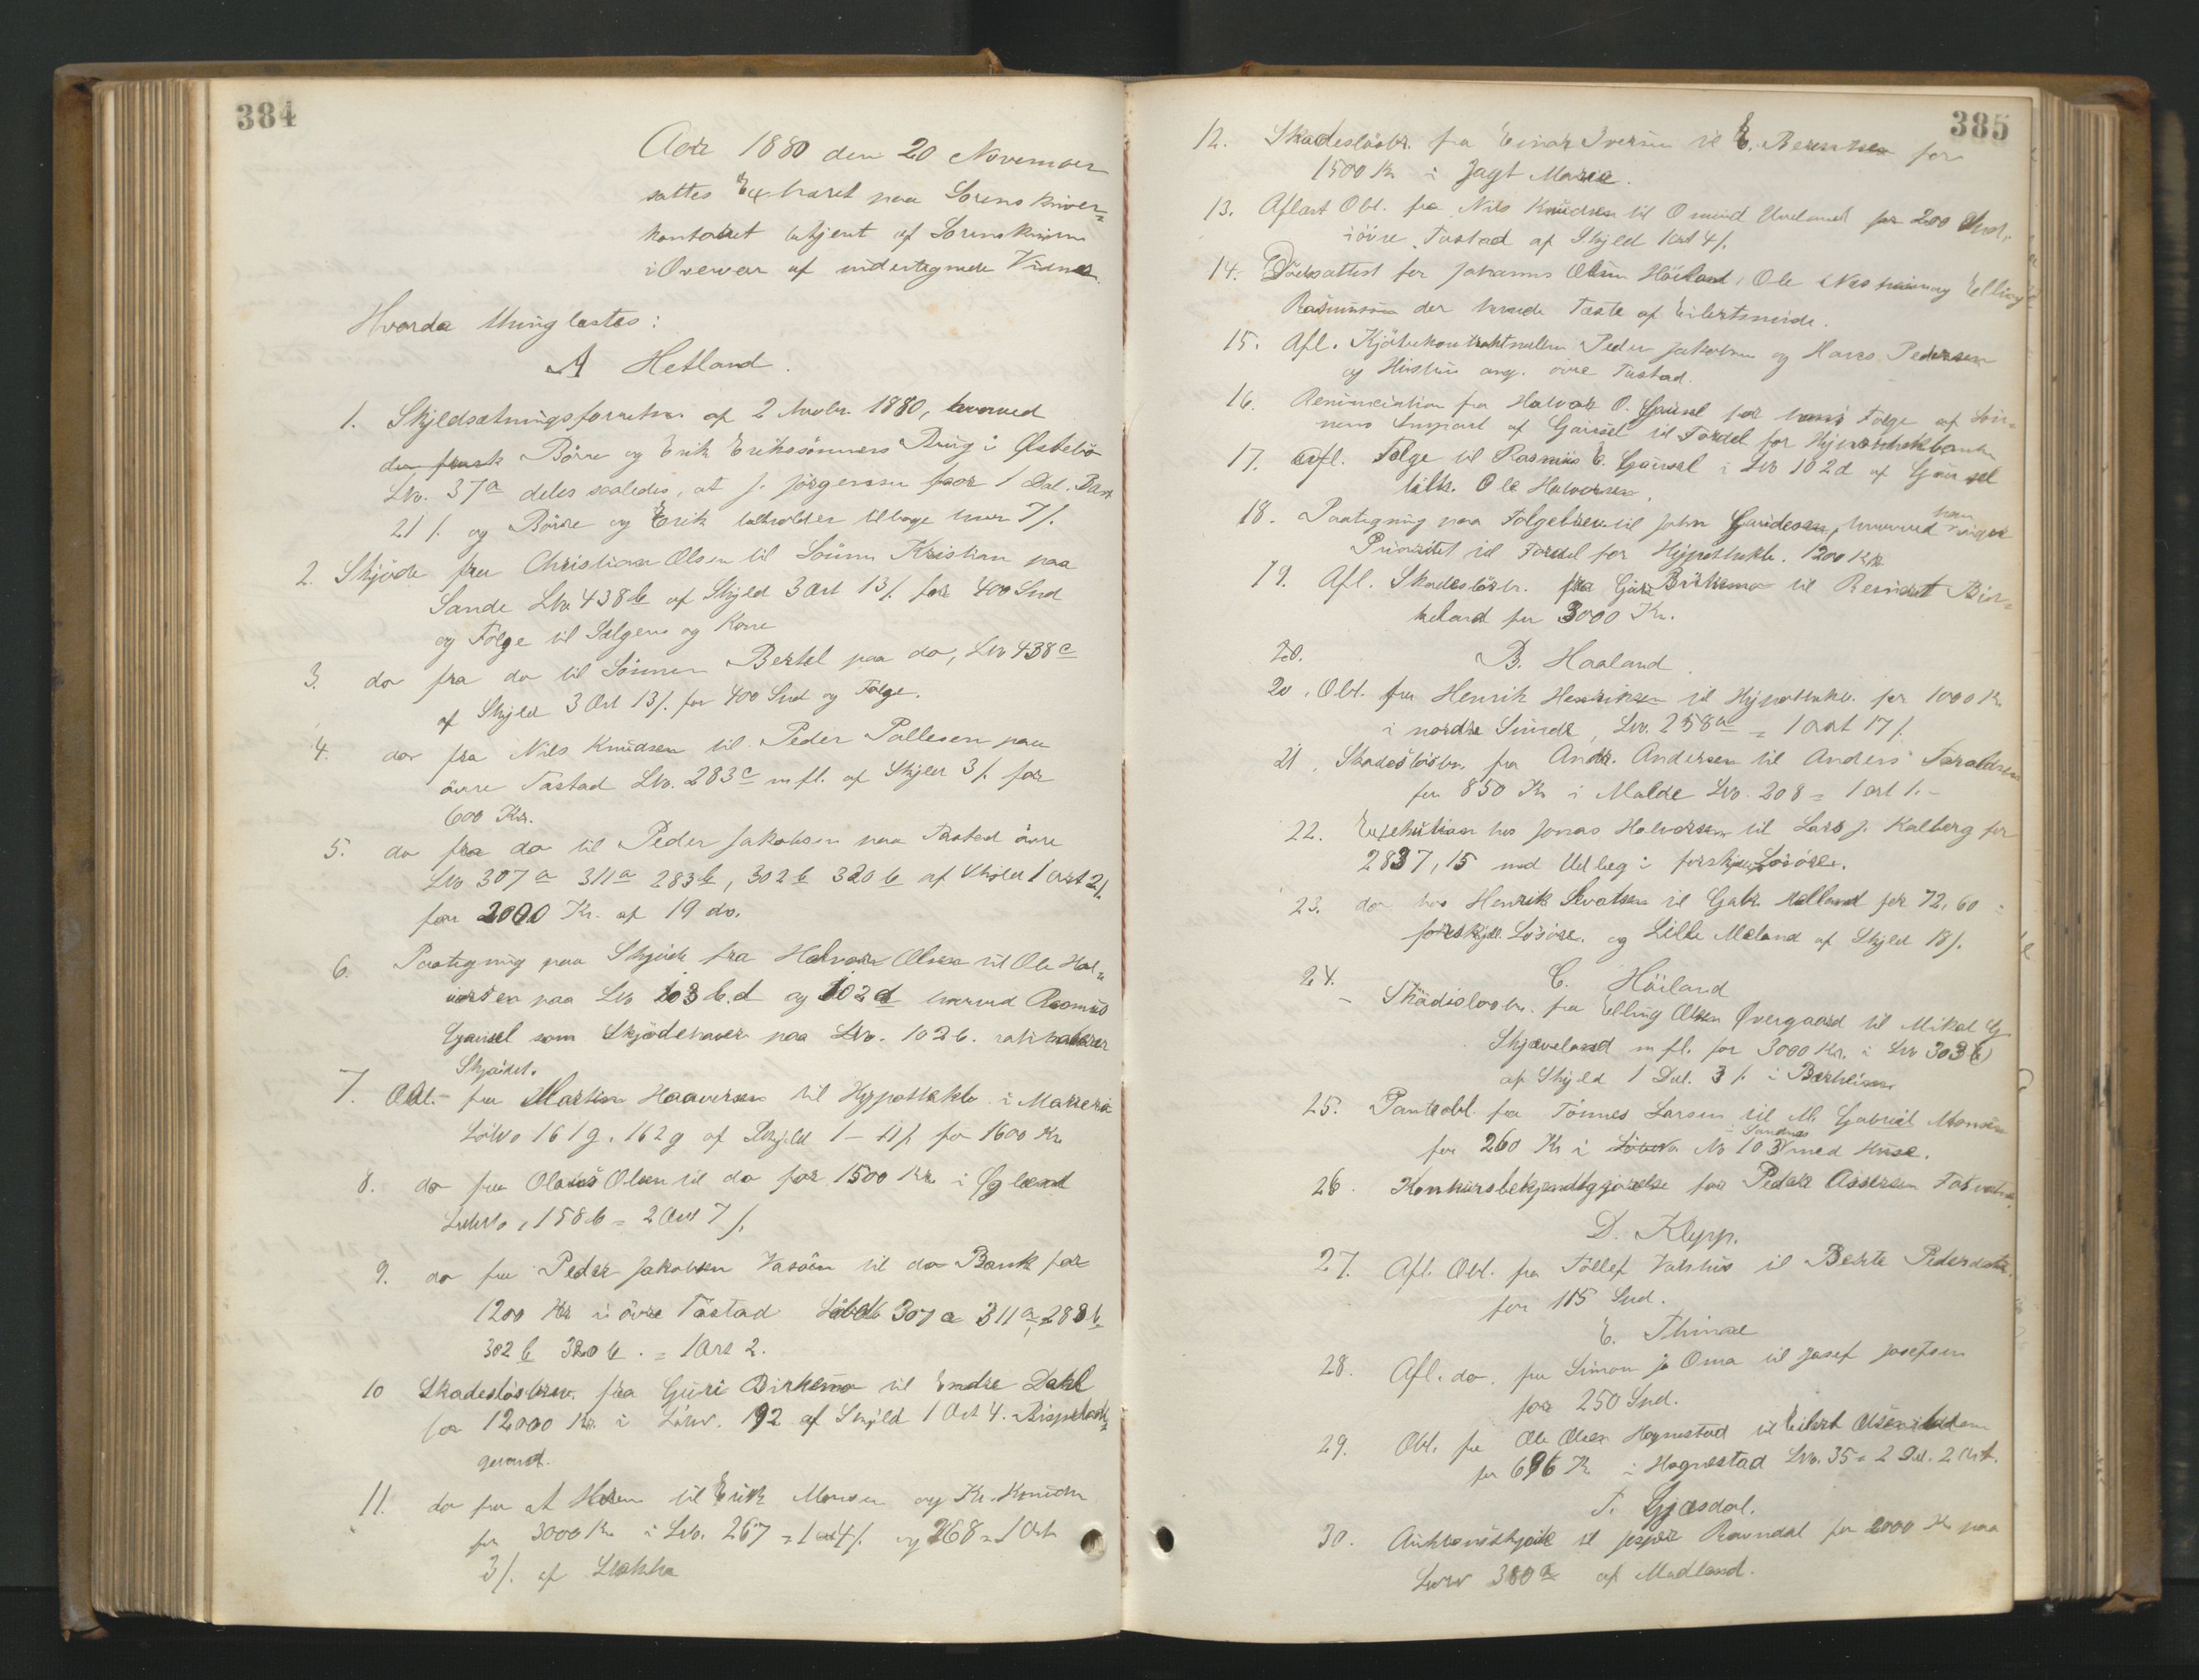 384
Aar 1880 den 20 November
sattes Ex.traret paa Sorenskriver-
kontoret betjent af Sorenskriveren
i Overvær af undertegnede Vidner.
Hvorda thinglæstes:
A Hetland.
1. Skyldsætningsforretn. af 2 Novbr. 1880, hvorved
Börre og Erik Erikssönners Brug i
Lbr. 37a deles saaledes, at J. Jörgensen faar 1 Dal.
21 /. og Börre og Erik beholder tilbage hver 7/.
2. Skjöde fra Christian Olsen til Sönnen Kristian paa
Sande Lbr. 438b af Skyld 3 Ort 13/. for 400 Spd
og Fölge til Sælgeren og Kone
3. do fra do til Sönnen Bertel paa do, Lbr 438c
af Skyld 3 Ort 13/. for 400 Spd og Fölge.
4. do fra Nils Knudsen til Peder Pallesen paa
övre Tastad Lbr. 283c m fl. af Skyld 3/. for
600 Kr.
5. do fra do til Peder Jakobsen paa Tastad övre
Lbr 307a 311a 283b, 302b 320b af Skyld 1 ort 2/.
for 2000 Kr. af 19 do.
6. Paategning paa Skjöde fra Halvor Olsen til Ole Hal-
vorsen paa Lbr 103 b.d og 102d hvorved Rasmus
Gausel som Skjödehaver paa Lbr. 102b. ratihaberer
Skjödet.
7. Obl. fra Martin Haaversen til Hypothekb. i Marrero
LöbNo 161g. 162g af Skyld 1 - 11/. for 1600 Kr
8. do fra Olaus Olsen til do for 1500 Kr. i Øgland
LöbNo, 158b = 2 Ort 7/.
9. do fra Peder Jakobsen Vasöen til do Bank for
1200 Kr i övre Tastad Löbeb 307a 311a, 283b
302b 320b. = 1 Ort 2.
10 Skadeslösbrev. fra Guri Birkemo til Endre Dahl
for 12000 Kr. i Löbnr. 192 af Skyld 1 Ort 4.
gerund.
11. do fra A til Erik Monsen og Kr. Knudsen
for 3000 Kr. i Lbr. 267 = 1 ort 4/. og 268 = 1 Ort
3/. af Stokka
385
12. Skadeslösbr. fra Einar Iversen til E. Berentsen for
1500 Kr i Jagt Marie.
13. Aflæst Obl. fra Nils Knudsen til Omund for 200 Spd.
i övre Tastad af Skyld 1 ort 4/.
14. Dödsattest for Johannes Olsen Höiland, Ole og Elling
Rasmussen der havde Fæste af
15. Afl. Kjöbekontrakt mellem Peder Jakobsen og Hans Pedersen
og Hustru ang. övre Tastad.
16. Renunciation fra Halvor O. Gausel for hans Fölge af Sön-
nens Anpart af Gausel til Fordel for Hypothekbanken
17. Afl. Fölge til Rasmus E. Gausel i Lbr 102d af Gausel
tilh. Ole Halvorsen.
18. Paategning paa Fölgebrev til John Gundersen, hvorved han viger
Prioritet til Fordel for Hypothekb. 1200 Kr
19. Afl. Skadeslösbr. fra Guri Birkemo til Berndt Bir-
keland for 3000 Kr.
20. B. Haaland
20. Obl. fra Henrik Henriksen til Hypothekb. for 1000 Kr.
i nordre Sunde, Lbr. 258a = 1 ort 17/.
21. Skadeslösbr. fra Andr. Andersen til Anders Taraldsen
for 850 Kr i Malde Lbr. 208 = 1 ort 1. -
22. Exekution hos Jonas Halvorsen til Lars J. Kalberg for
2837,15 med Udlæg i forskjell. Lösöre.
23. do hos Henrik til Gabr. Mælland for 72,60 i
forskjell. Lösöre. og Lille Meland af Skyld 18/.
24. C. Höiland
- Skadeslösbr. fra Elling Olsen Øvergaard til Mikal G
Skjæveland m fl. for 3000 Kr. i Lbr 303b
af Skyld 1 Dal. 3/. i Bærheim
25. Panteobl. fra Tönnes Larsen til M. Gabriel Monsen
for 260 Kr i No 103 i Sandnes med Huse.
26. Konkursbekjendtgjörelse for Peder Assersen
D. Klepp.
27. Afl. Obl. fra Tollef Vatshus til Berte Pedersdatter.
for 115 Spd.
E. Thime
28. Afl. do. fra Simon J. Oma til Josef Josefsen
for 250 Spd.
29. Obl. fra Ole Olsen Hognestad til Eilert Olsen
for 696 Kr i Hognestad Lbr. 35 = 2 Dal. 2 Ort.
F. Gjesdal.
30. Auktionsskjöde til Jesper Ravndal for 2000 Kr paa
Löbr 380a af Madland.